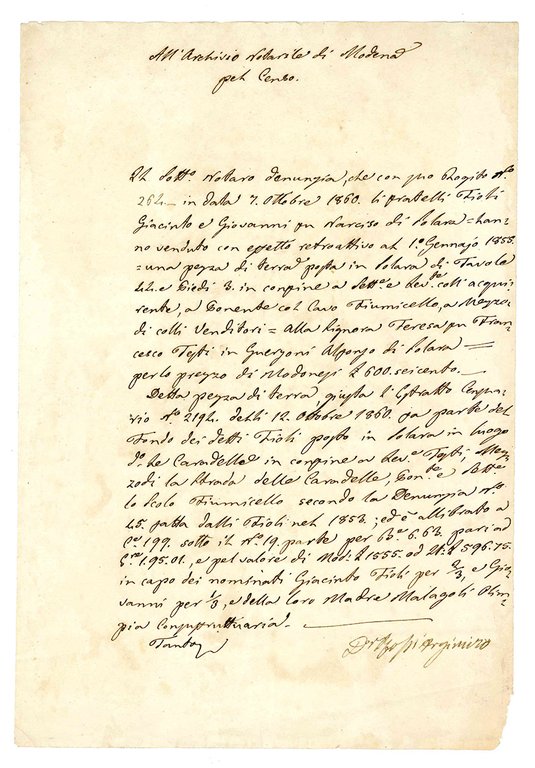 All'Archivio Notarile di Modena
pel Censo.
Il Sotto Notaro denunzia, che con suo Rogito No
262 in data 7. Ottobre 1860. li fratelli Fioli
Giacinto e Giovanni fu Narciso di Solara = han=
no venduto con effetto retroattivo al 1o. Gennajo 1855.
= una pezza di terra posta in Solara di Tavole
42. e Piedi 3. in confine a Sette. e Lev.te coll'acqui=
rente, a Ponente col Cavo Fiumicello, a Mezzo=
di colli Venditori = alla Signora Teresa fu Fran=
cesco Testi in Guerzoni Alfonso di Solara =
per lo prezzo di Modonesi £ 600. seicento.
Detta pezza di terra, giusta l'Estratto Censua=
rio No. 2192. delli 12. Ottobre 1860. fa parte del
Fondo dei detti Fioli posto in Solara in luogo
do. le Caradelle in confine a Lev.e Testi, Mez=
zodi la Strada delle Caradelle, Pon.te e Sette
lo Scolo Fiumicello secondo la Denunzia No.
45. fatta dalli Fioli nel 1853.; ed è allibrato a
Ce. 199. sotto il No. 19. parte per Be. 6.63. pari ad
1.95.01., e pel valore di Mod. £ 1555. od It. £ 596.75.
in capo dei nominati Giacinto Fioli per 2/3, e Gio=
vanni per 1/3, e della loro Madre Malagoli Olim=
pia Conusufruttuaria.
Tanto
Dr Rossi Arginiro